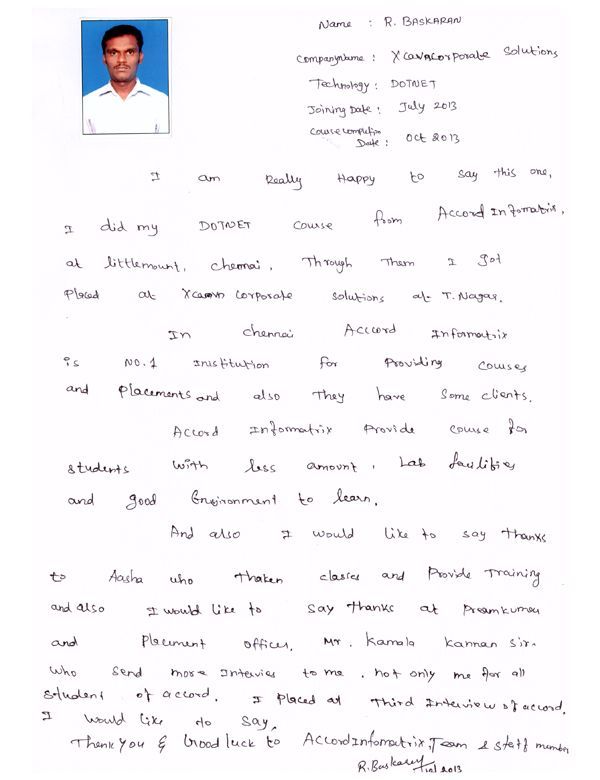 Name : R. BASKARAN
Companyname : Xcavacorporate Solutions
Technology : DOTNET
Joining Date : July 2013
Course completion
Date : Oct 2013
I am Really Happy to say this one,
I did my DOTNET course from Accord Infomatrix,
at littlemount, chennai, Through Them I got
Placed at Xcavan Corporate Solutions at T. Nagar.
In chennai Acccord Informatrix
is NO.1 Inistitution for Providing Courses
and Placements and also They have Some clients.
Accord Infomatrix Provide course for
students with less amount, Lab facilities
and good Environment to learn.
And also I would like to say thanks
to Aasha who thaken classes and Provide Training
and also I would like to say thanks at Preamkumar
and Placement officer, Mr. Kamala Kannan Sir.
who send more Intervies to me, not only me for all
student of accord. I Placed at Third Interview of accord.
I would like to say,
Thank You & Good luck to AccordInfomatrix, Team & staff member
R. Baskaran